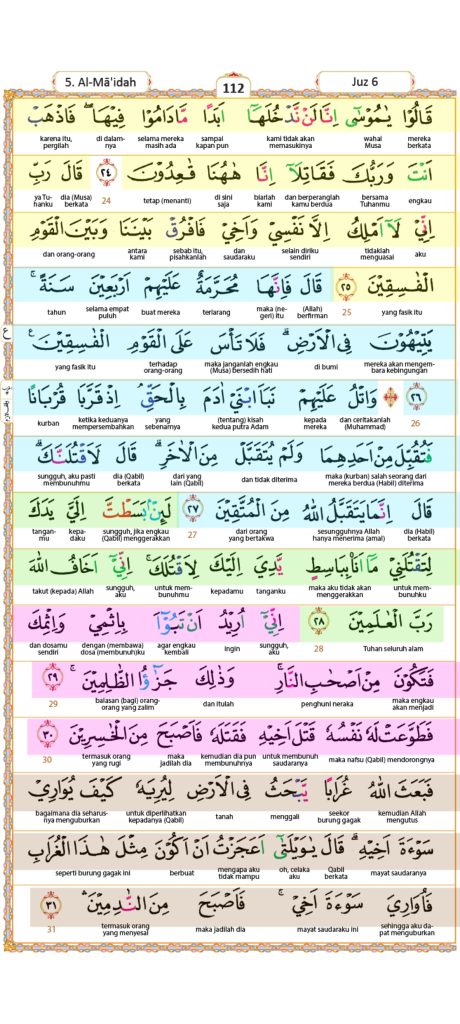 5. Al-Mā'idah
112
Juz 6
قَالُوْا يٰمُوْسٰٓى اِنَّا لَنْ نَّدْخُلَهَآ اَبَدًا مَّا دَامُوْا فِيْهَا ۖ فَاذْهَبْ
mereka berkata wahai Musa kami tidak akan memasukinya sampai kapan pun selama mereka masih ada di dalamnya karena itu, pergilah
اَنْتَ وَرَبُّكَ فَقَاتِلَآ اِنَّا هٰهُنَا قٰعِدُوْنَ ٢٤ قَالَ رَبِّ
engkau bersama Tuhanmu dan berperanglah kamu berdua biarlah kami di sini saja tetap (menanti) 24 dia (Musa) berkata ya Tuhanku
اِنِّيْ لَآ اَمْلِكُ اِلَّا نَفْسِيْ وَاَخِيْ فَافْرُقْ بَيْنَنَا وَبَيْنَ الْقَوْمِ
aku tidaklah menguasai selain diriku sendiri dan saudaraku sebab itu, pisahkanlah antara kami dan orang-orang
الْفٰسِقِيْنَ ٢٥ قَالَ فَاِنَّهَا مُحَرَّمَةٌ عَلَيْهِمْ اَرْبَعِيْنَ سَنَةً ۚ
yang fasik itu 25 (Allah) berfirman maka (negeri) itu terlarang buat mereka selama empat puluh tahun
يَتِيْهُوْنَ فِى الْاَرْضِۗ فَلَا تَأْسَ عَلَى الْقَوْمِ الْفٰسِقِيْنَ ۚ
mereka akan mengembara kebingungan di bumi maka janganlah engkau (Musa) bersedih hati terhadap orang-orang yang fasik itu
ع
٢٦ وَاتْلُ عَلَيْهِمْ نَبَاَ ابْنَيْ اٰدَمَ بِالْحَقِّۘ اِذْ قَرَّبَا قُرْبَانًا
26 dan ceritakanlah (Muhammad) kepada mereka (tentang) kisah kedua putra Adam yang sebenarnya ketika keduanya mempersembahkan kurban
فَتُقُبِّلَ مِنْ اَحَدِهِمَا وَلَمْ يُتَقَبَّلْ مِنَ الْاٰخَرِۗ قَالَ لَاَقْتُلَنَّكَ ۗ
maka (kurban) salah seorang dari mereka berdua (Habil) diterima dan tidak diterima dari yang lain (Qabil) dia (Qabil) berkata sungguh, aku pasti membunuhmu
قَالَ اِنَّمَا يَتَقَبَّلُ اللّٰهُ مِنَ الْمُتَّقِيْنَ ٢٧ لَىِٕنْۢ بَسَطْتَّ اِلَيَّ يَدَكَ
dia (Habil) berkata sesungguhnya Allah hanya menerima (amal) dari orang yang bertakwa 27 sungguh, jika engkau (Qabil) menggerakkan kepadaku tanganmu
لِتَقْتُلَنِيْ مَآ اَنَا۠ بِبَاسِطٍ يَّدِيَ اِلَيْكَ لِاَقْتُلَكَۚ اِنِّيْٓ اَخَافُ اللّٰهَ
untuk membunuhku maka aku tidak akan menggerakkan tanganku kepadamu untuk membunuhmu sungguh, aku takut (kepada) Allah
رَبَّ الْعٰلَمِيْنَ ٢٨ اِنِّيْٓ اُرِيْدُ اَنْ تَبُوْۤاَ بِاِثْمِيْ وَاِثْمِكَ
Tuhan seluruh alam 28 sungguh, aku ingin agar engkau kembali dengan (membawa) dosa (membunuh)ku dan dosamu sendiri
فَتَكُوْنَ مِنْ اَصْحٰبِ النَّارِۚ وَذٰلِكَ جَزٰۤؤُا الظّٰلِمِيْنَ ۚ ٢٩
maka engkau akan menjadi penghuni neraka dan itulah balasan (bagi) orang-orang yang zalim 29
فَطَوَّعَتْ لَهٗ نَفْسُهٗ قَتْلَ اَخِيْهِ فَقَتَلَهٗ فَاَصْبَحَ مِنَ الْخٰسِرِيْنَ ٣٠
maka nafsu (Qabil) mendorongnya untuk membunuh saudaranya kemudian dia pun membunuhnya maka jadilah dia termasuk orang yang rugi 30
فَبَعَثَ اللّٰهُ غُرَابًا يَّبْحَثُ فِى الْاَرْضِ لِيُرِيَهٗ كَيْفَ يُوَارِيْ
kemudian Allah mengutus seekor burung gagak menggali tanah untuk diperlihatkan kepadanya (Qabil) bagaimana dia seharusnya menguburkan
سَوْءَةَ اَخِيْهِ ۗ قَالَ يٰوَيْلَتٰٓى اَعَجَزْتُ اَنْ اَكُوْنَ مِثْلَ هٰذَا الْغُرَابِ
mayat saudaranya Qabil berkata oh, celaka aku mengapa aku tidak mampu berbuat seperti burung gagak ini
فَاُوَارِيَ سَوْءَةَ اَخِيْ ۚ فَاَصْبَحَ مِنَ النّٰدِمِيْنَ ۛ ٣١
sehingga aku dapat menguburkan mayat saudaraku ini maka jadilah dia termasuk orang yang menyesal 31